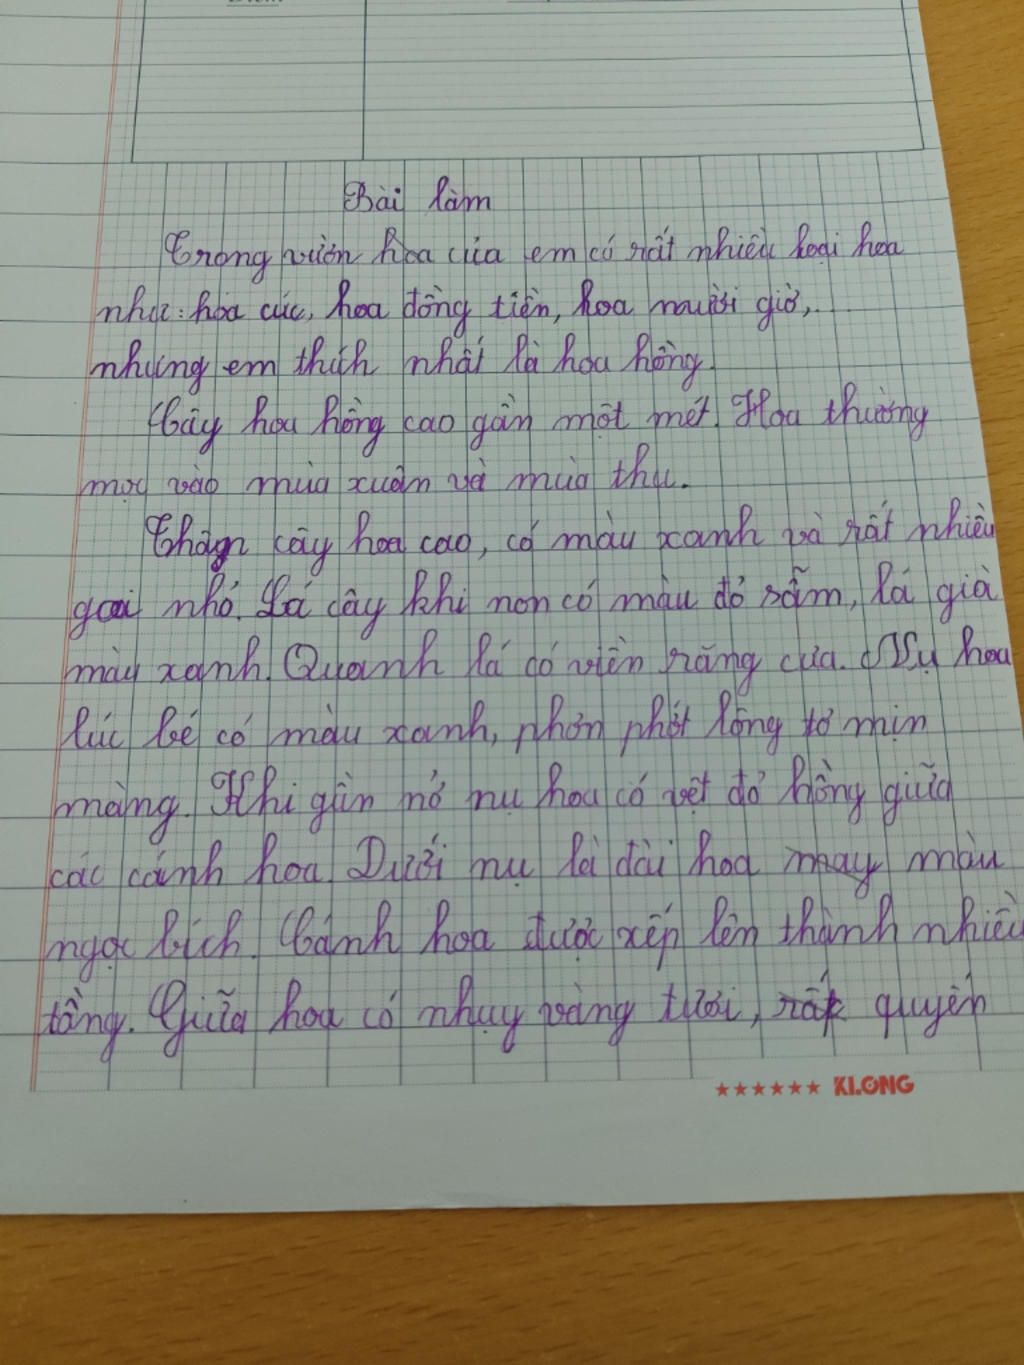 Bài làm
Trong vườn hoa của em có rất nhiều loại hoa
như: hoa cúc, hoa đồng tiền, hoa mười giờ,..
nhưng em thích nhất là hoa hồng.
Cây hoa hồng cao gần một mét. Hoa thường
mọc vào mùa xuân và mùa thu.
Thân cây hoa cao, có màu xanh và rất nhiều
gai nhỏ. Lá cây khi non có màu đỏ sẫm, lá già
màu xanh. Quanh lá có viền răng cưa. Nụ hoa
lúc bé có màu xanh, phơn phớt lông tơ mịn
màng. Khi gần nở nụ hoa có vệt đỏ hồng giữa
các cánh hoa. Dưới nụ là đài hoa may màu
ngọc bích. Cánh hoa được xếp lên thành nhiều
tầng. Giữa hoa có nhụy vàng tươi, rất quyến
★★★★★★ KLONG